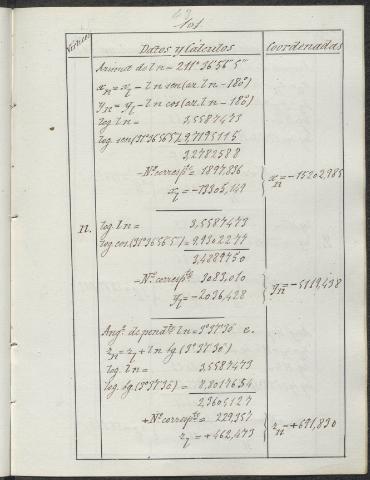 101
Vértices
Datos y Cálculos
Coordenadas
Azimut de ln = 211°36'56'5"
xn = xl - ln sen (az. ln - 180°)
yn = yl - ln cos (az. ln - 180°)
log. ln = 3,5587473
log. sen (31°36'56'5") = 9,7195115
3,2782588
- Nº. corresp.te = 1897,836
xl = - 13305,149
xn = - 15202,985
n.
log. ln = 3,5587473
log. cos (31°36'56'5") = 9,9302277
3,4889750
- Nº. corresp.te 3083,010
yl = - 2036,428
yn = - 5119,438
Ang.º de pend.te ln = 3°37'30" e.
zn = zl + ln tg (3°37'30")
log. ln = 3,5587473
log. tg (3°37'30") = 8,8017654
2,3605127
+ Nº. corresp.te = 229,357
zl = + 462,473
zn = + 691,830